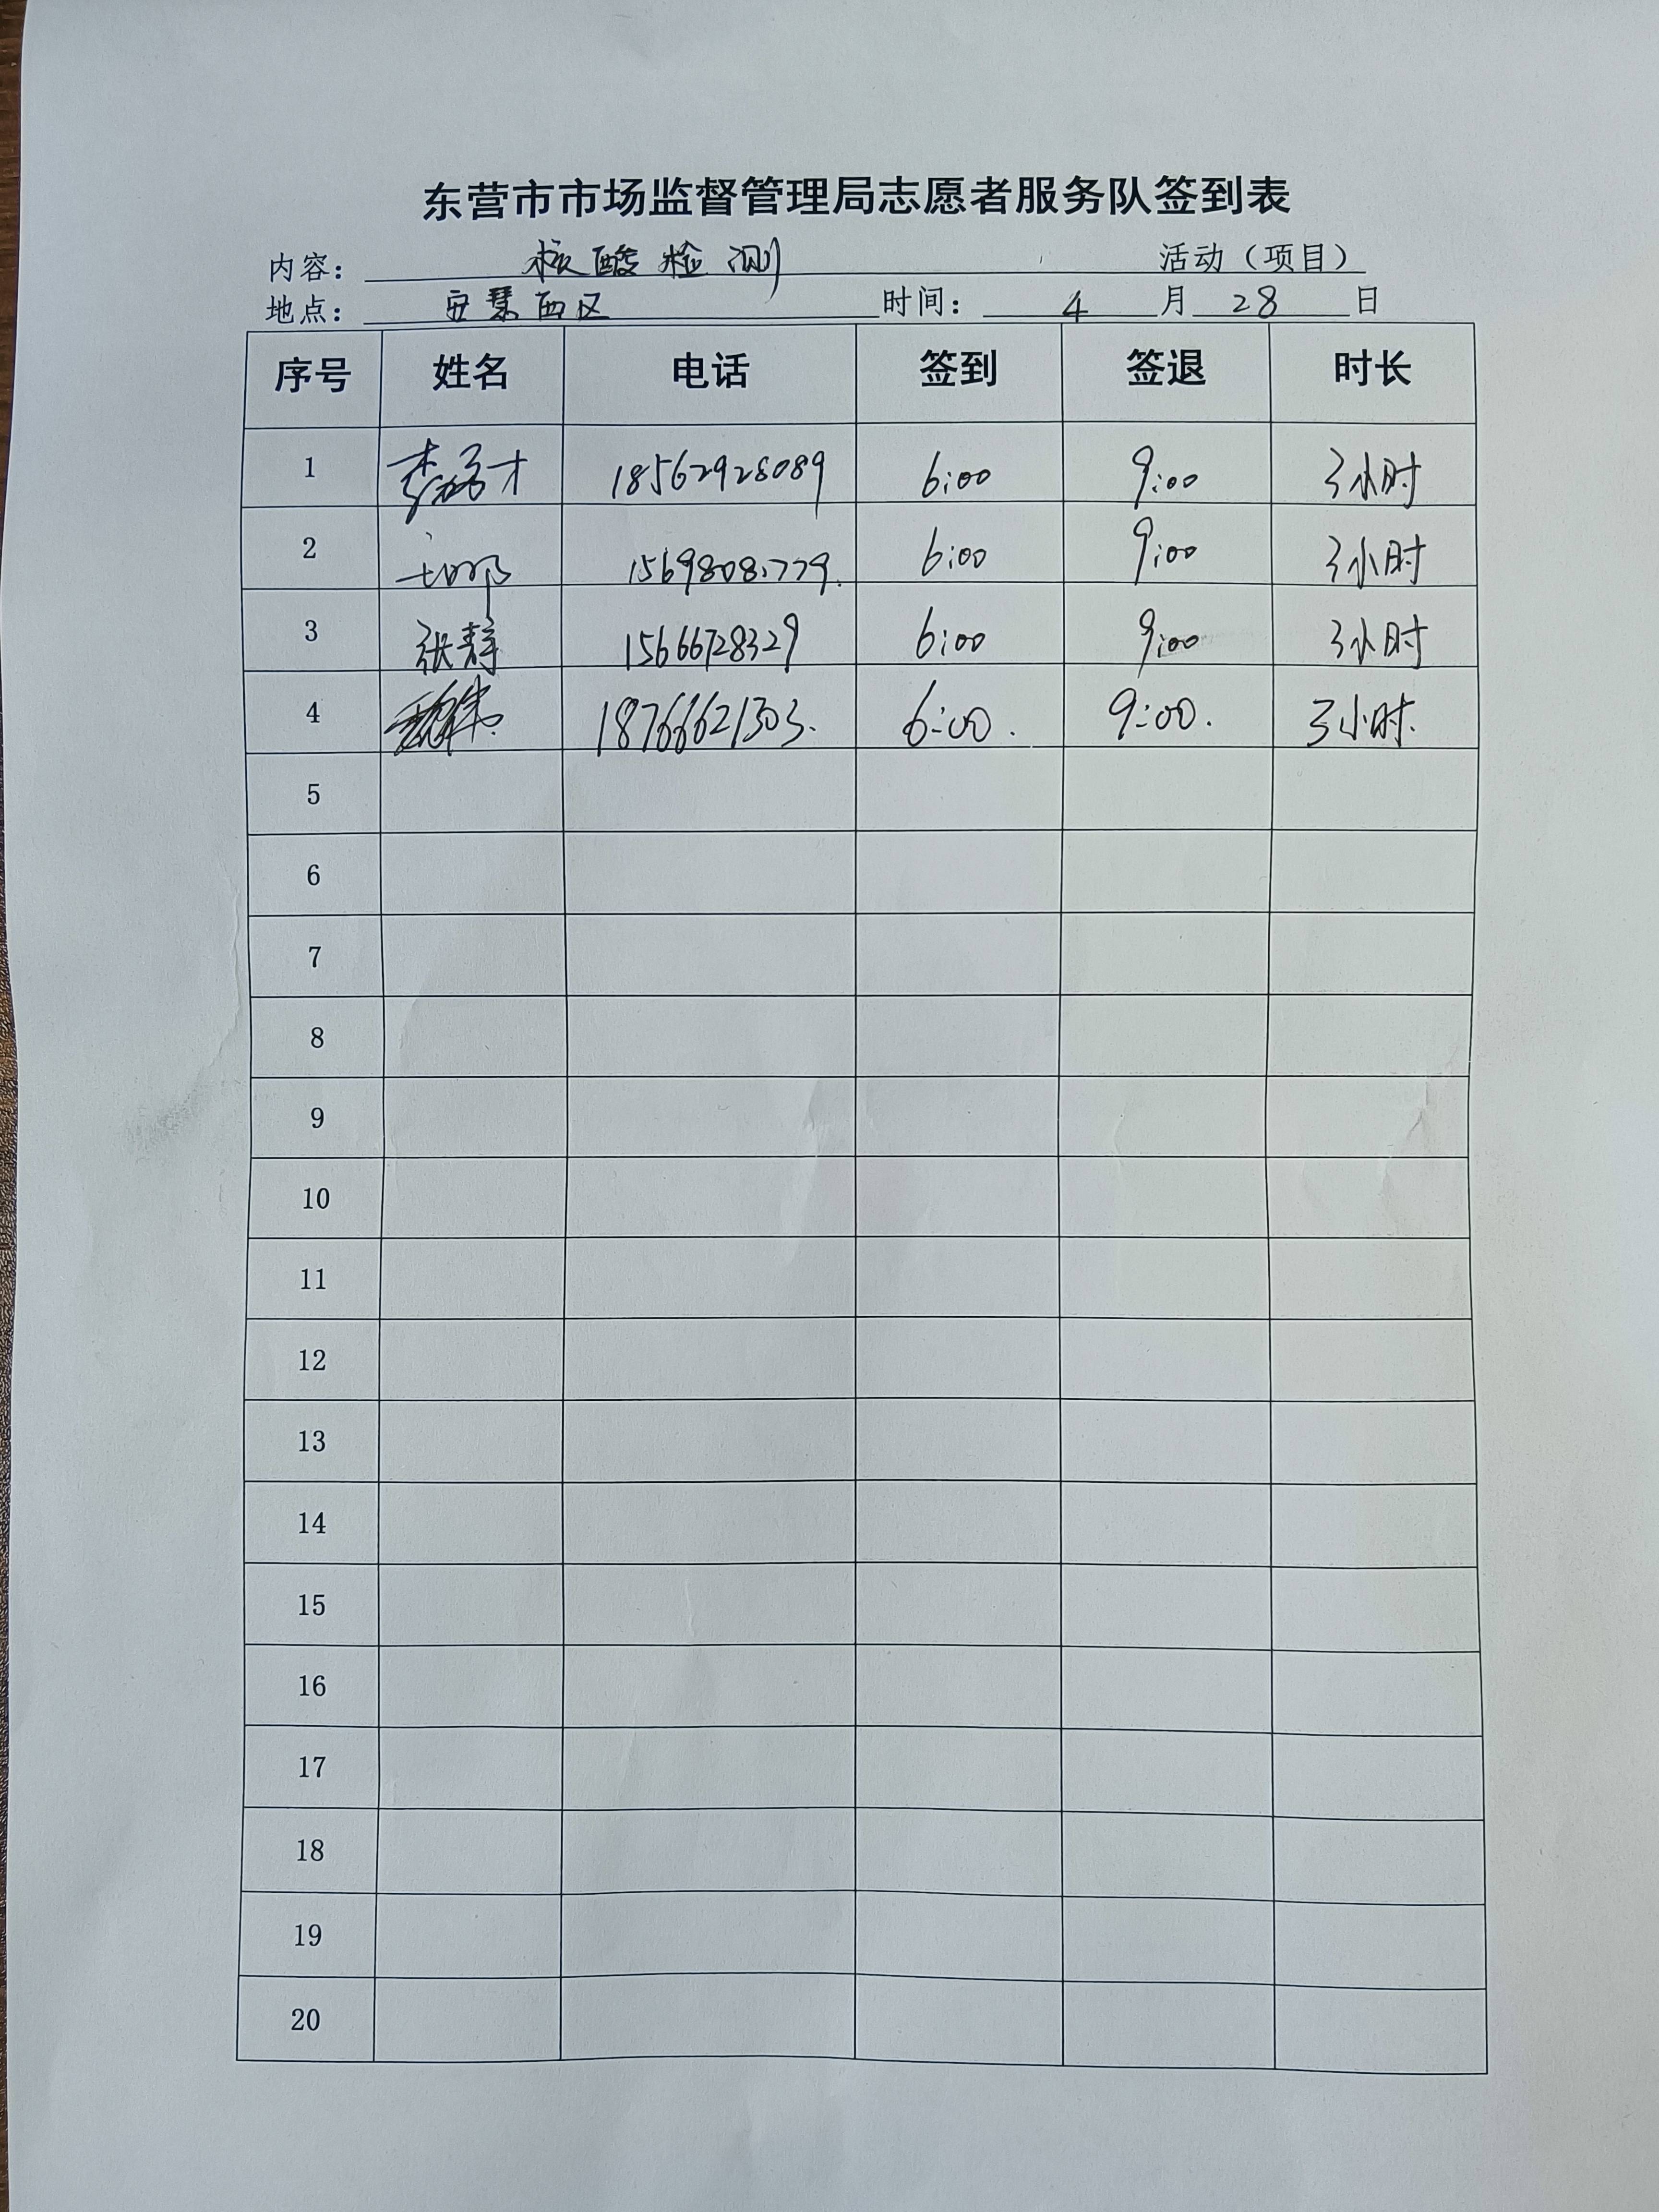 东营市市场监督管理局志愿者服务队签到表
内容： 核酸检测 活动（项目）
地点： 安慧西区 时间： 4 月 28 日
序号 姓名 电话 签到 签退 时长
1 18562928089 6:00 9:00 3小时
2 6:00 9:00 3小时
3 张静 15666728329 6:00 9:00 3小时
4 18766621303. 6:00. 9:00. 3小时.
5
6
7
8
9
10
11
12
13
14
15
16
17
18
19
20